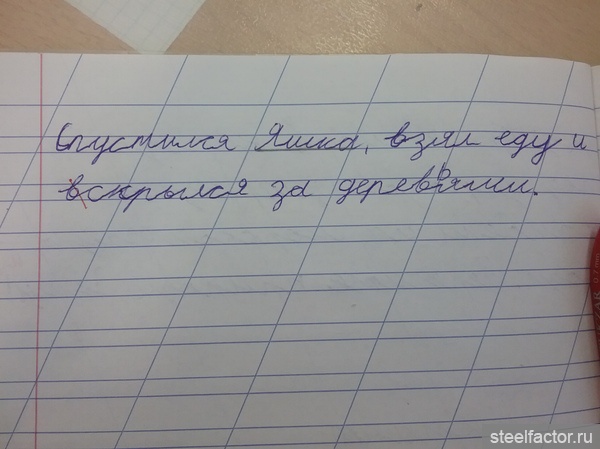 Спустился Яшка, взял еду и
вскрылся за деревьями.
steelfactor.ru